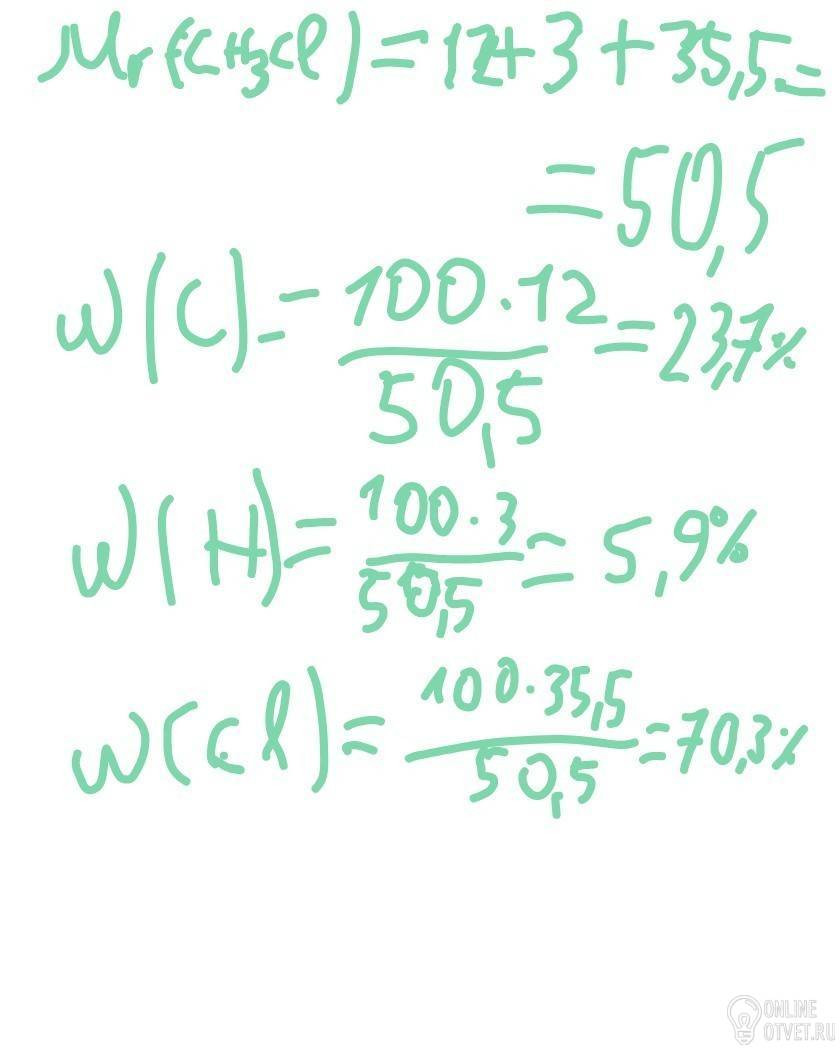 Mr(CH3Cl) = 12+3+35,5=
=50,5
W(C)= 100·12/50,5 = 23,7%
W(H)= 100·3/50,5 = 5,9%
W(Cl)= 100·35,5/50,5 =70,3%
ONLINE
OTVET.RU